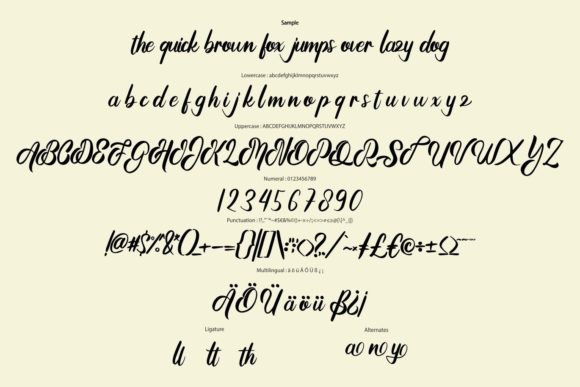 Sample
the quick brown fox jumps over lazy dog
Lowercase : abcdefghijklmnopqrstuvwxyz
a b c d e f g h i j k l m n o p q r s t u v w x y z
Uppercase : ABCDEFGHIJKLMNOPQRSTUVWXYZ
ABCDEFGHIJKLMNOPQRSTUVWXYZ
Numeral : 0123456789
1234567890
Multilingual : ä ö ü Ä Ö Ü ß ¿ ¡
ÄÖÜäöüß¿¡
Ligature
ll tt th
Alternates
ao no yo